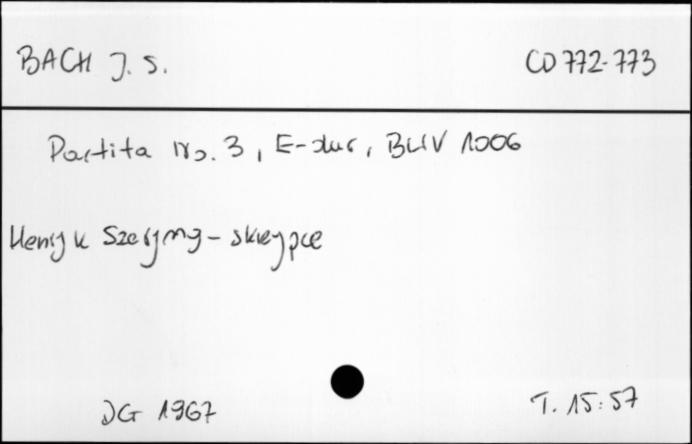 BACH J. S. CD 772-773
Partita No. 3, E-dur, BWV 1006
Henryk Szeryng - skrzypce
DG 1967 T. 15:57